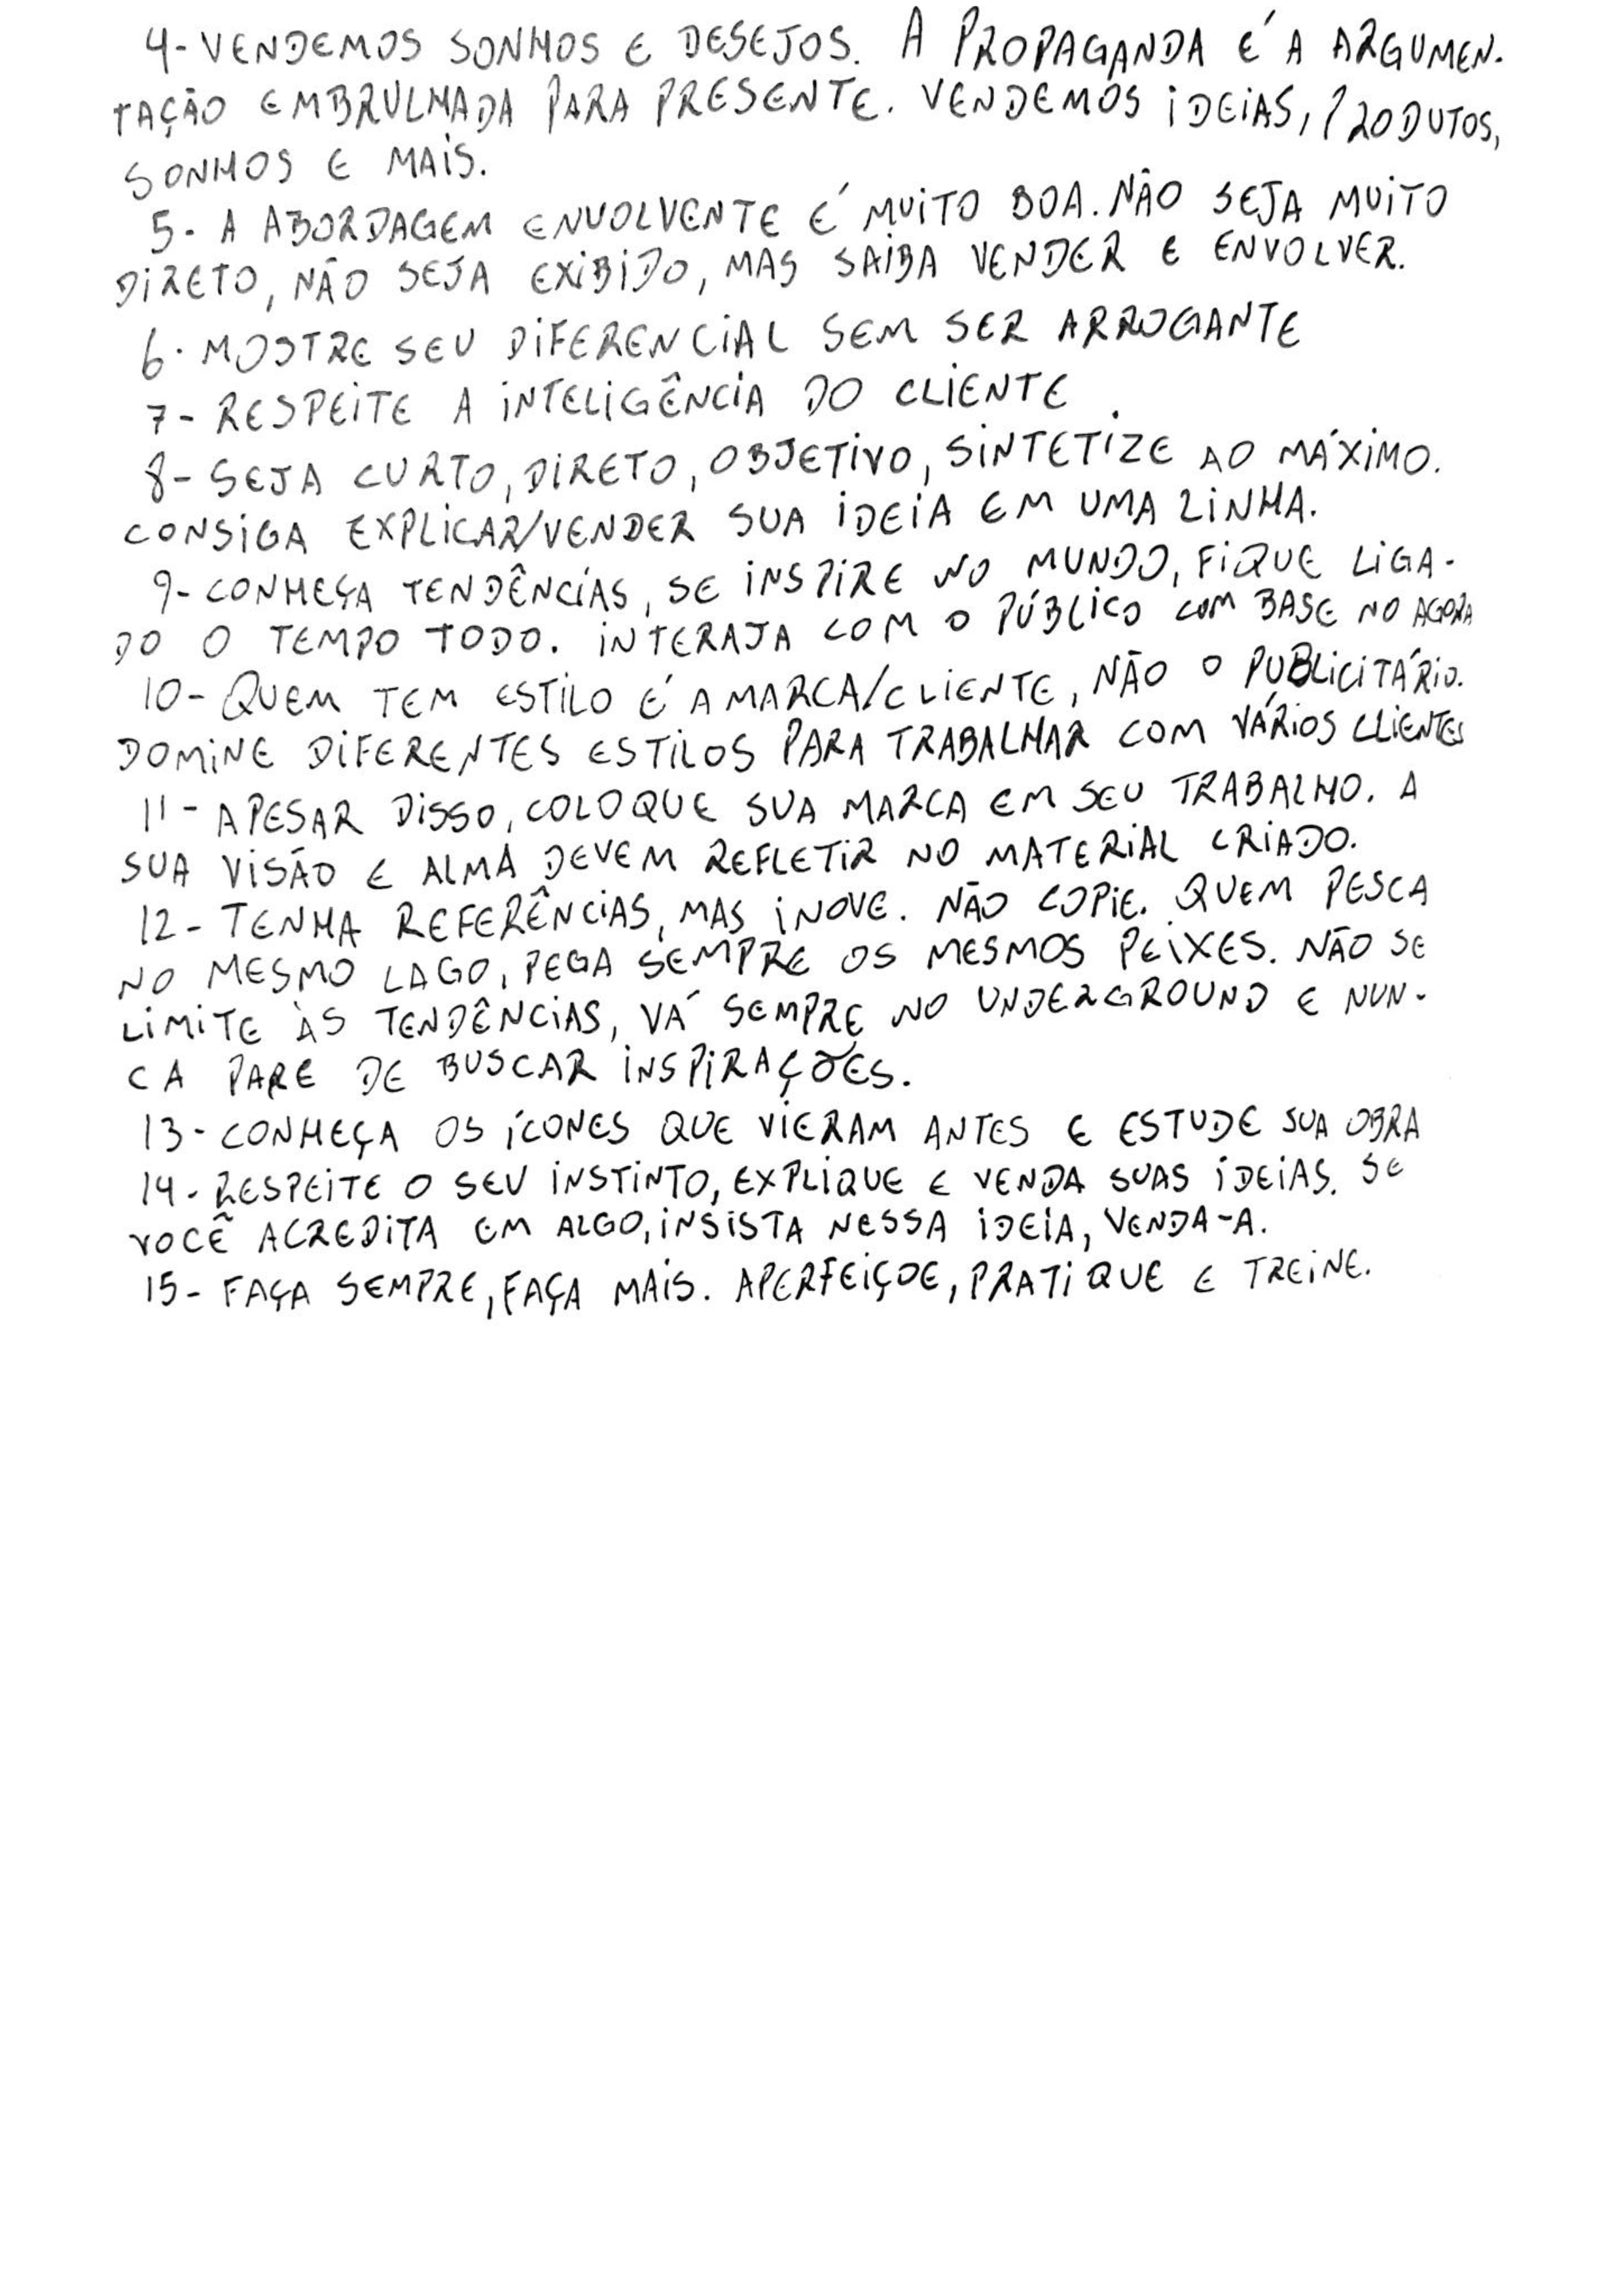 4- VENDEMOS SONHOS E DESEJOS. A PROPAGANDA É A ARGUMEN-
TAÇÃO EMBRULHADA PARA PRESENTE. VENDEMOS IDEIAS, PRODUTOS,
SONHOS E MAIS.
5- A ABORDAGEM ENVOLVENTE É MUITO BOA. NÃO SEJA MUITO
DIRETO, NÃO SEJA EXIBIDO, MAS SAIBA VENDER E ENVOLVER.
6- MOSTRE SEU DIFERENCIAL SEM SER ARROGANTE
7- RESPEITE A INTELIGÊNCIA DO CLIENTE.
8- SEJA CURTO, DIRETO, OBJETIVO, SINTETIZE AO MÁXIMO.
CONSIGA EXPLICAR/VENDER SUA IDEIA EM UMA LINHA.
9- CONHEÇA TENDÊNCIAS, SE INSPIRE NO MUNDO, FIQUE LIGA-
DO O TEMPO TODO. INTERAJA COM O PÚBLICO COM BASE NO AGORA
10- QUEM TEM ESTILO É A MARCA/CLIENTE, NÃO O PUBLICITÁRIO.
DOMINE DIFERENTES ESTILOS PARA TRABALHAR COM VÁRIOS CLIENTES
11- APESAR DISSO, COLOQUE SUA MARCA EM SEU TRABALHO. A
SUA VISÃO E ALMA DEVEM REFLETIR NO MATERIAL CRIADO.
12- TENHA REFERÊNCIAS, MAS INOVE. NÃO COPIE. QUEM PESCA
NO MESMO LAGO, PEGA SEMPRE OS MESMOS PEIXES. NÃO SE
LIMITE ÀS TENDÊNCIAS, VÁ SEMPRE NO UNDERGROUND E NUN-
CA PARE DE BUSCAR INSPIRAÇÕES.
13- CONHEÇA OS ÍCONES QUE VIERAM ANTES E ESTUDE SUA OBRA
14- RESPEITE O SEU INSTINTO, EXPLIQUE E VENDA SUAS IDEIAS. SE
VOCÊ ACREDITA EM ALGO, INSISTA NESSA IDEIA, VENDA-A.
15- FAÇA SEMPRE, FAÇA MAIS. APERFEIÇOE, PRATIQUE E TREINE.